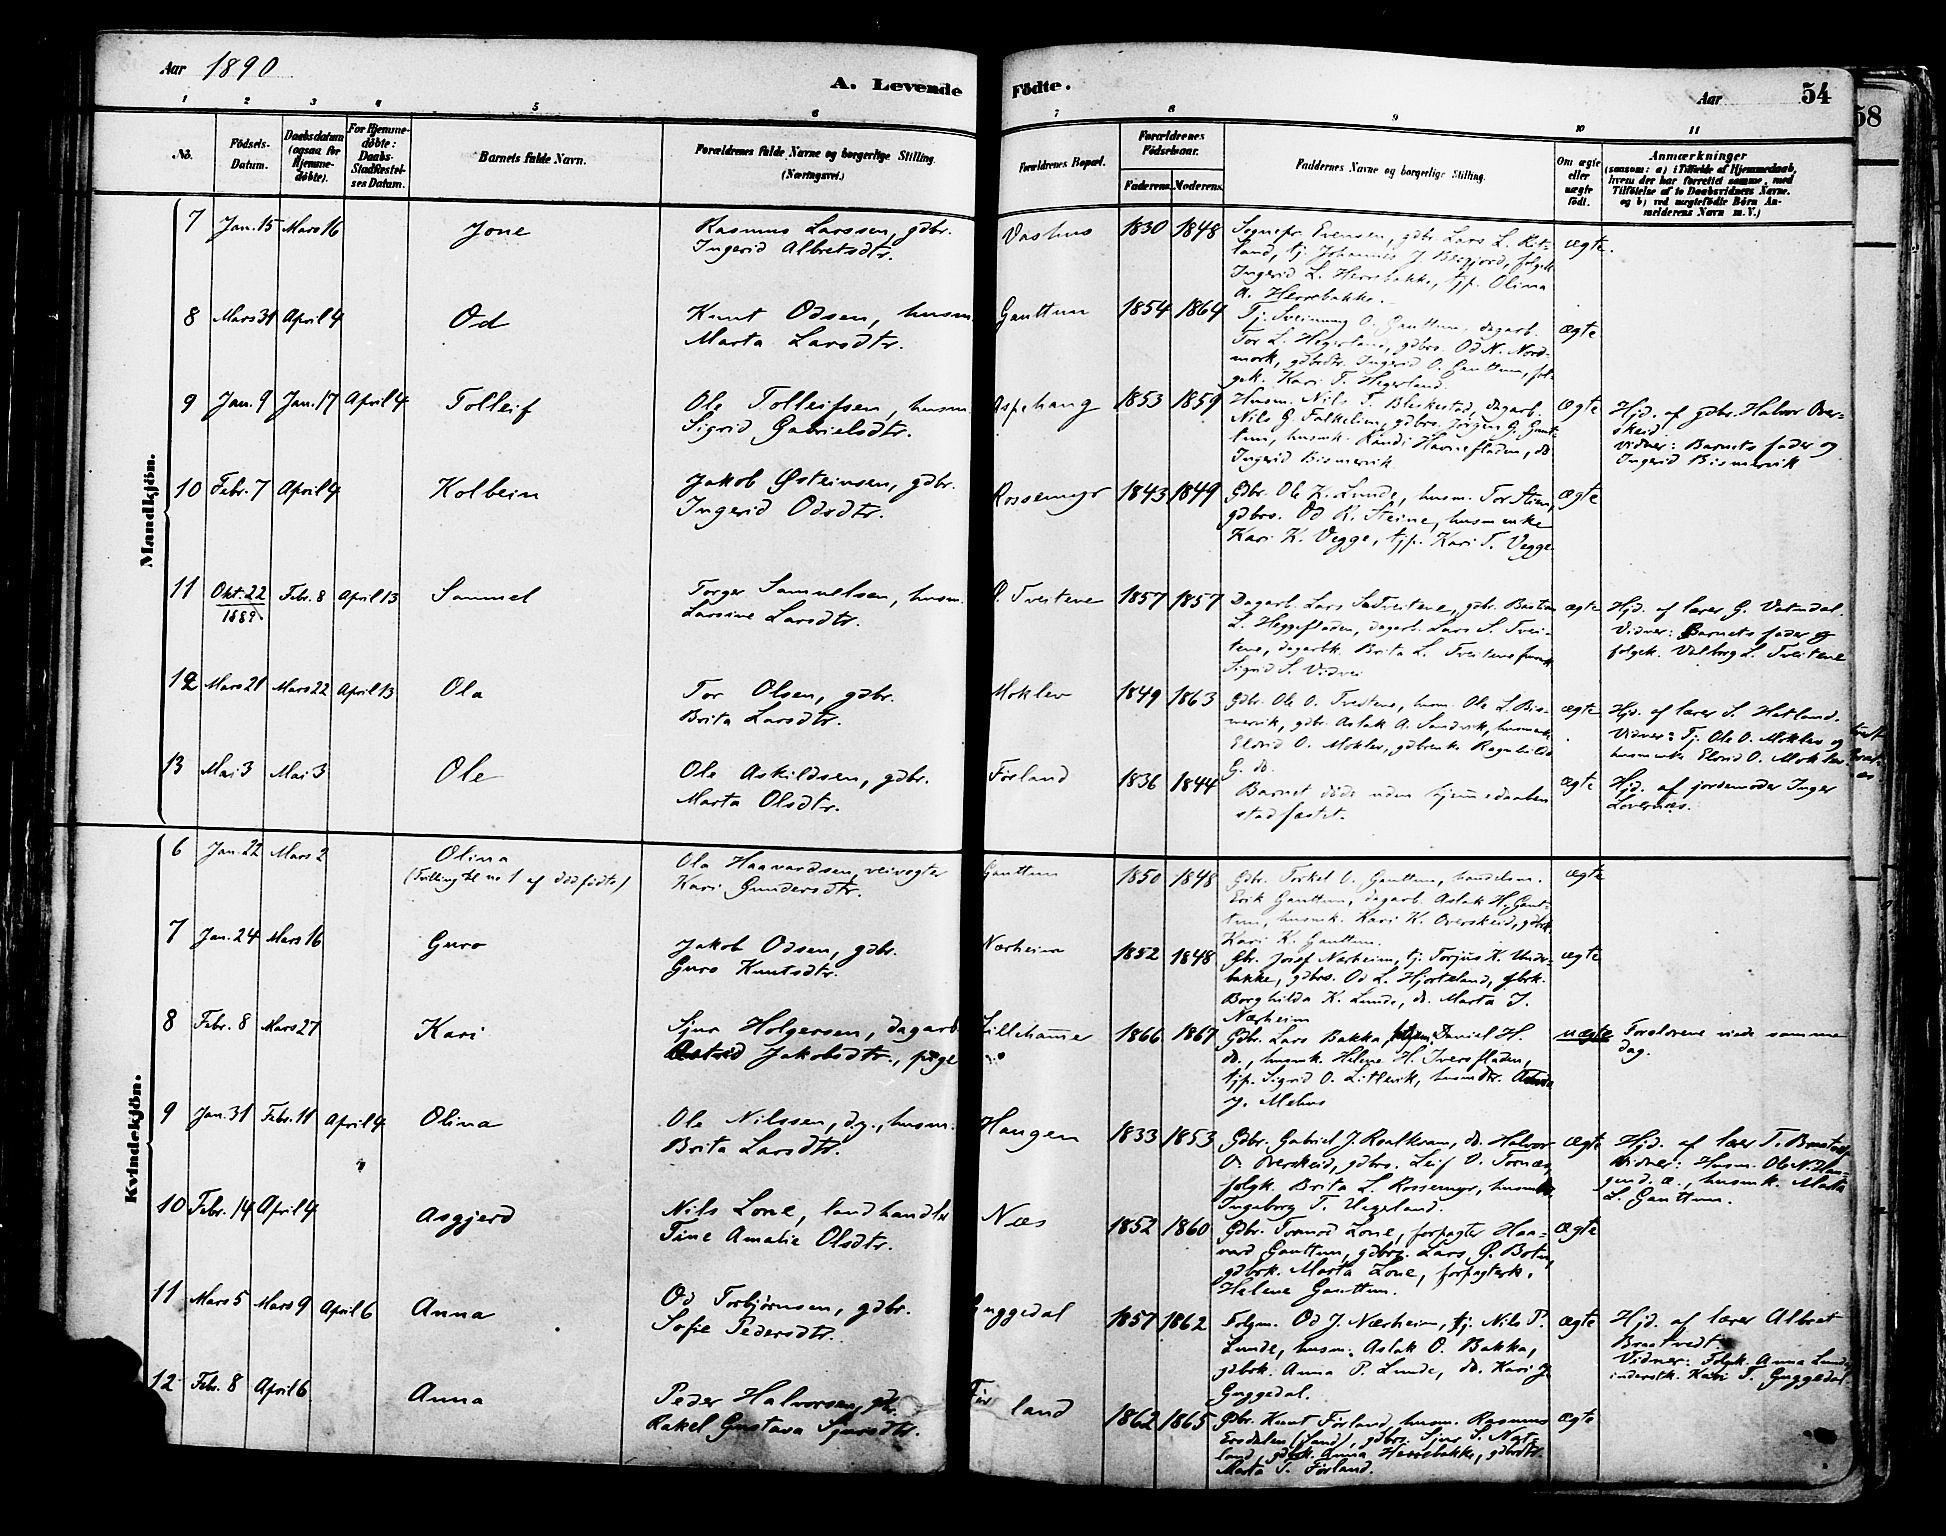 Aar 1890
A. Levende Födte.
Aar 54
58
1 2 3 4 5 6 7 8 9 10 11
No.
Födsels-Datum.
Daabsdatum (ogsaa for Hjemme-döbte).
For Hjemme-döbte: Daabs-Stadfæstel-ses Datum.
Barnets fulde Navn.
Forældrenes fulde Navne og borgerlige Stilling. (Næringsvei.)
Forældrenes Bopæl.
Forældrenes Födselsaar.
Faderens. Moderens.
Faddernes Navne og borgerlige Stilling.
Om ægte eller uægte födt.
Anmærkninger
(saasom: a) i Tilfælde af Hjemmedaab, hvem der har forrettet samme, med Tilföielse af to Daabsvidners Navne, og b) ved uægtefödte Börn An-melderens Navn m.V.)
Mandkjön.
7 Jan. 15 Mars 16 Jone
Rasmus Larssen, gdbr.
Ingerid Albretsdtr.
Vashus 1830 1848
Sognepr. Evensen, gdbr. Lars L. Ret-
land, tj. Johannes J. Bergjord, folgek.
Ingerid L. Herrebakke, tjp. Olina
A. Herrebakke.
ægte.
8 Mars 31 April 4 Od
Knut Odsen, husm.
Marta Larsdtr.
Gauttun 1854 1864
Tj. Sveinung O. Gauttun, dagarb.
Tor L. Hegerland, gdbrs. Od K. Nord-
mork, gdbrdtr. Ingerid O. Gauttun, fol-
gek. Kari T. Hegerland.
ægte
9 Jan. 9 Jan. 17 April 4 Tolleif
Ole Tolleifsen, husm.
Sigrid Gabrielsdtr.
Aspehaug 1853 1859
Husm. Nils T. Bleskestad, dagarb.
Nils G. Falkelim, gdbrs. Jörgen G. Gaut-
tun, husmk. Randi Havrefladen, do.
Ingerid Bismervik
ægte
Hjd. af gdbr. Halvor Over-
skeid.
Vidner: Barnets fader og
Ingerid Bismervik
10 Febr. 7 April 4 Kolbein
Jakob Østeinsen, gdbr.
Ingerid Odsdtr.
Rossemyr 1843 1849
Gdbr. Ole K. Lunde, husm. Tor Stien,
gdbrs. Od R. Steine, husm enke
Kari K. Vegge, tjp. Kari T. Vegge
ægte
11 Okt. 22 1889. Febr. 8 April 13 Samuel
Torger Samuelsen, husm.
Larsine Larsdtr.
Ø. Tveitene 1857 1857
Dagarb. Lars S. Tveitene, gdbr. Bastian
L. Heggefladen, dagarb. Lars S. Tvei-
tene, dagarbk. Brita L. Tveitene
Sigrid S. Vidvei
ægte
Hjd. af lærer G. Vatndal.
Vidner: Barnets fader og
folgek. Valborg L. Tveitene
12 Mars 21 Mars 22 April 13 Ola
Tor Olsen, gdbr.
Brita Larsdtr.
Moklev 1849 1863
Gdbr. Ole O. Tveitene, husm. Ole L. Bis-
mervik, gdbr. Aslak A. Sandvik, husmenke
Elevid O. Moklev, gdbrenke Ragnhilde
G. do.
ægte
Hjd. af lærer S. Hatland.
Vidner: Tj. Ole O. Moklev og
husmenke Elevid O. Moklev
13 Mai 3 Mai 3 Ole
Ole Askildsen, gdbr.
Marta Olsdtr.
Førland 1836 1844
Barnet døde uden hjemmedaaben
stadfæstet.
ægte
Hjd. af jordemoder Inger
Lovernæs.
Kvindekjön.
6 Jan. 22 Mars 2 Olina
(Tvilling til no 1 af dødfødte)
Ola Haavardsen, veivogter
Kari Gundersdtr.
Gauttun 1850 1848
Gdbr. Torkel O. Gauttun, handelsm.
Erik Gauttun, dagarb. Aslak H. Gaut-
tun, husmk. Kari K. Overskeid, gdbrk.
Kari K. Gauttun.
ægte
7 Jan. 24 Mars 16 Guro
Jakob Odsen, gdbr.
Guro Knutsdtr.
Nærheim 1852 1848
Gbr. Josef Nærheim, tj. Torjus K. Under-
bakke, gdbrs. Od L. Hjorteland, gbrk.
Borghilda K. Lunde, do. Marta J.
Nærheim
ægte
8 Febr. 8 Mars 27 Kari
Sjur Holgersen, dagarb.
Astrid Jakobsdtr., pige
Lillehamre 1866 1867
Gdbr. Lars Bakka, Daniel H.
do., husmk. Helene H. Tversfladen,
tjp. Sigrid O. Litlevik, husmdtr.
Mehus
uægte
Forældrene viede samme
dag.
9 Jan. 31 Febr. 11 April 4 Olina
Ole Nilssen, d.y., husm.
Brita Larsdtr.
Haugen 1833 1853
Gdbr. Gabriel J. Roalkvam, do. Halvor
O. Overskeid, gdbrs. Leif O. Tornæs,
folgk. Brita L. Rossemyr, husmk.
Ingeborg T. Hegeland.
ægte
Hjd. af lærer T. Bratvedt
Vidner: Husm. Ole N. Hau-
gen d. æ., husmk. Marta
L. Gauttun.
10 Febr. 14 April 4 Asgjerd
Nils Lone, landhandler
Tine Amalie Olsdtr.
Næs 1852 1860
Gdbr. Tormod Lone, forpagter Haa-
vard Gauttun, gdbrs. Lars Ø. Botn,
gdbrk. Marta Lone, forpagterk.
Helene Gauttun.
ægte
11 Mars 5 Mars 9 April 6 Anna
Od Torbjørnsen, gdbr.
Sofie Pedersdtr.
Guggedal 1857 1862
Folgm. Od J. Nærheim, tj. Nils P.
Lunde, husm. Aslak O. Bakka,
gdbrk. Anna P. Lunde, do. Kari J.
Guggedal.
ægte
Hjd. af lærer Albret
Braatvedt.
Vidner: Folgk. Anna Lunde
inderstk. Kari T. Guggedal.
12 Febr. 8 April 6 Anna
Peder Halvorsen, gbr.
Rakel Gustava Sjursdtr.
Førland 1862 1865
Gdbr. Knut Førland, husm. Rasmus
Ersdalen (Sand), gdbrs. Sjur S. Nat-
land, gdbrk. Anna Herrebakke, gdbrdtr.
Marta T. Førland.
ægte